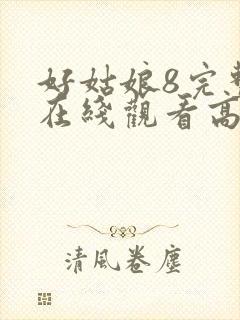 好姑娘8完整
在綫觀看高
清風卷塵